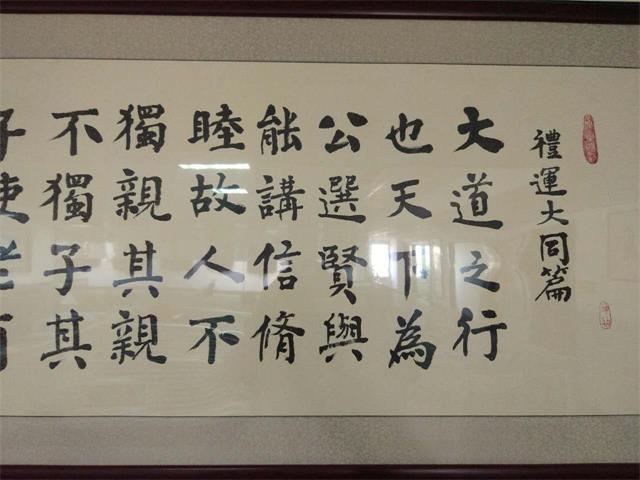 禮運大同篇
大道之行
也天下為
公選賢與
能講信脩
睦故人不
獨親其親
不獨子其
子使老有